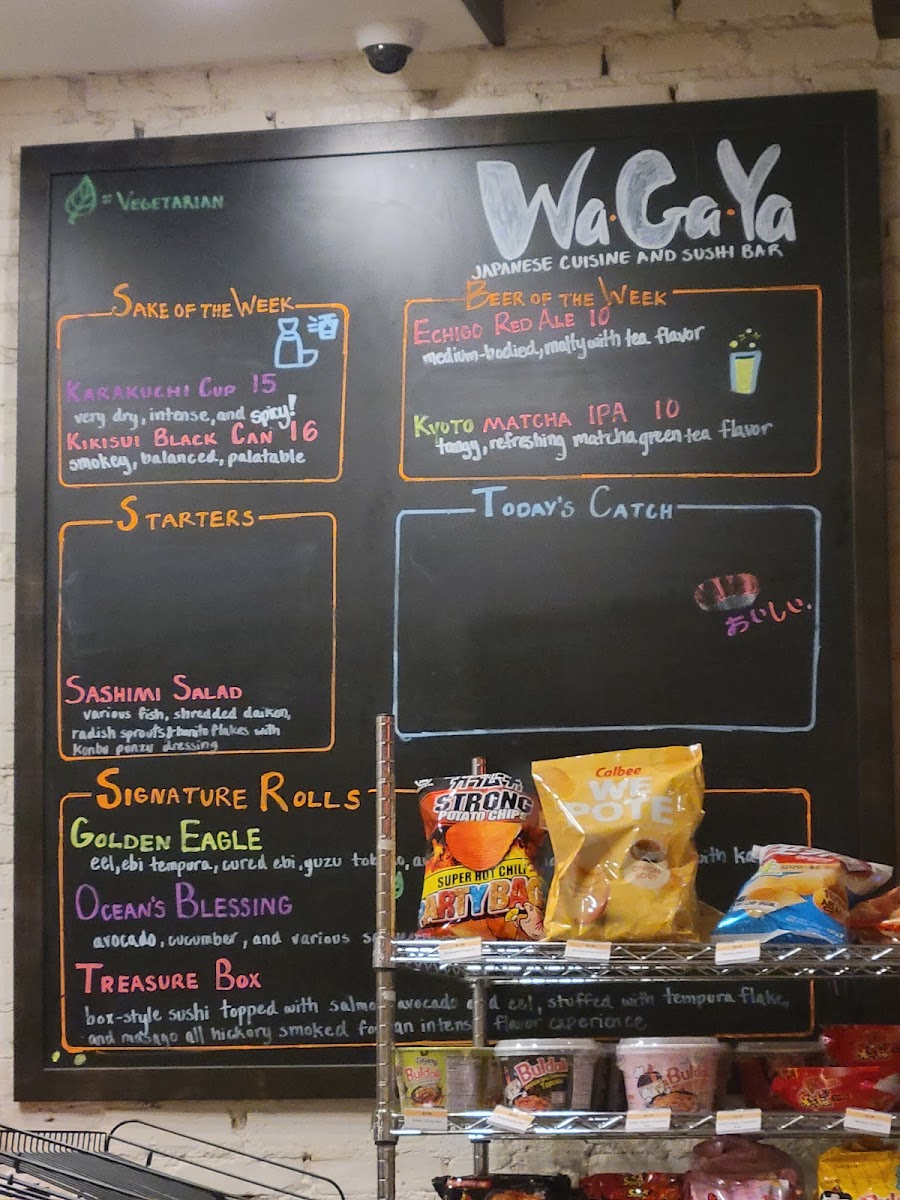 = Vegetarian
Wa·Ga·Ya
JAPANESE CUISINE AND SUSHI BAR
SAKE OF THE WEEK
KARAKUCHI CUP 15
very dry, intense, and spicy!
KIKISUI BLACK CAN 16
smokey, balanced, palatable
BEER OF THE WEEK
ECHIGO RED ALE 10
medium-bodied, malty with tea flavor
KYOTO MATCHA IPA 10
tangy, refreshing matcha green tea flavor
STARTERS
SASHIMI SALAD
various fish, shredded daikon,
radish sprouts, bonito flakes with
konbu ponzu dressing
TODAY'S CATCH
おいしい.
SIGNATURE ROLLS
GOLDEN EAGLE
eel, ebi tempura, cured ebi, guzu
with
OCEAN'S BLESSING
avocado, cucumber, and various
TREASURE BOX
box-style sushi topped with salmon avocado and eel, stuffed with tempura flake,
and masago all hickory smoked for an intense flavor experience
カラムーチョ
STRONG
POTATO CHIPS
SUPER HOT CHILI
PARTY BAG
Calbee
WE
POTE
Buldak
Buldak
Buldak